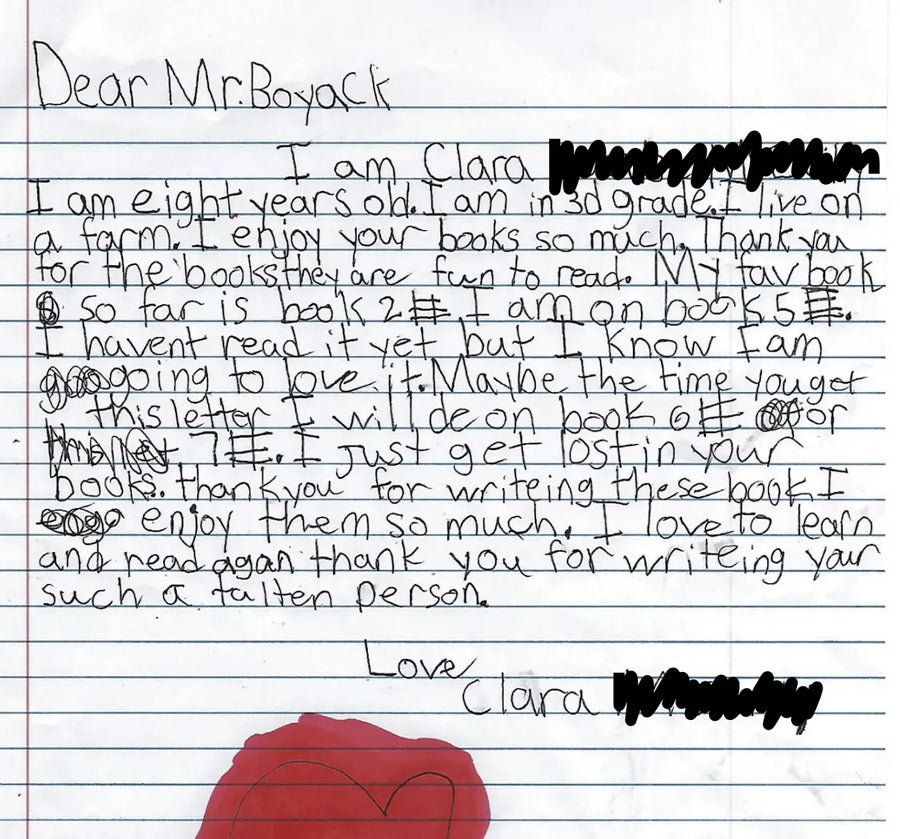 Dear Mr. Boyack
I am Clara
I am eight years old. I am in 3d grade. I live on
a farm. I enjoy your books so much. Thank you
for the books they are fun to read. My fav book
so far is book 2#. I am on book 5#.
I havent read it yet but I know I am
going to love it. Maybe the time you get
this letter I will de on book 6# or
7#. I just get lost in your
books. thank you for writeing these book I
enjoy them so much. I love to learn
and read agan thank you for writeing your
such a talten person.
Love
Clara